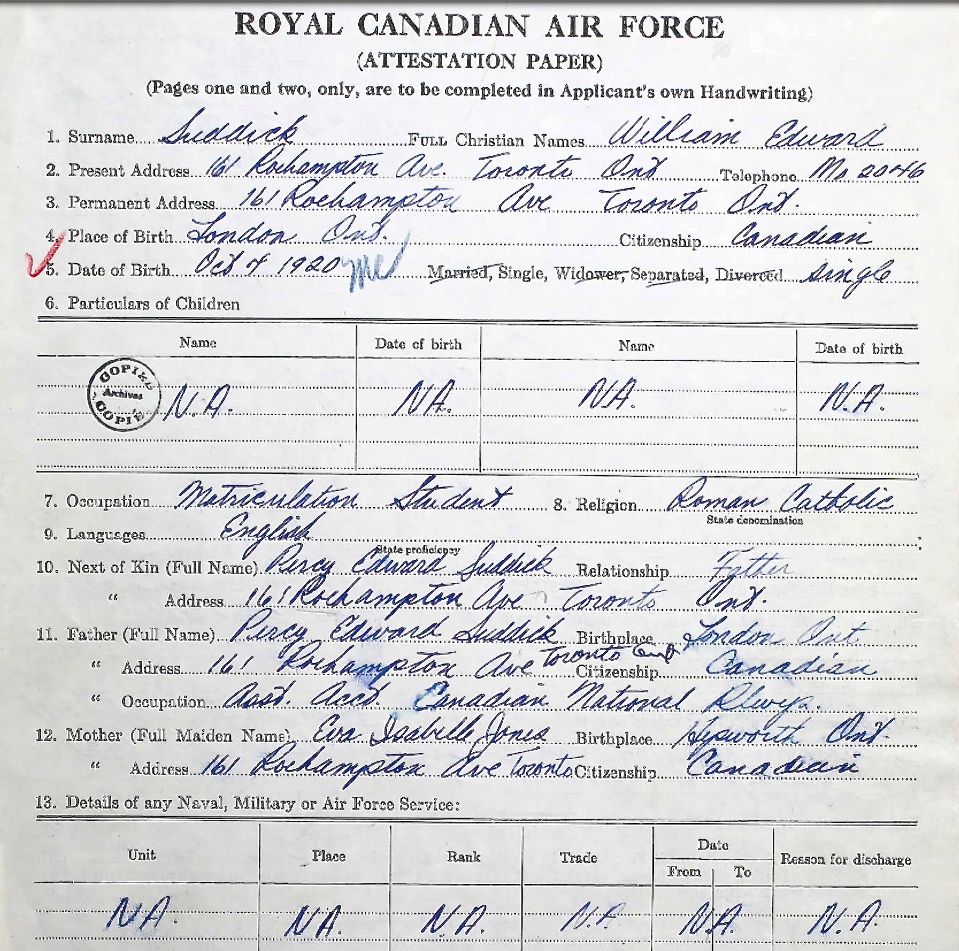 ROYAL CANADIAN AIR FORCE
(ATTESTATION PAPER)
(Pages one and two, only, are to be completed in Applicant's own Handwriting)
1. Surname Suddick FULL Christian Names William Edward
2. Present Address 161 Roehampton Ave Toronto Ont Telephone Mo 2046
3. Permanent Address 161 Roehampton Ave Toronto Ont.
4. Place of Birth London Ont. Citizenship Canadian
5. Date of Birth Oct 1920 Married, Single, Widower, Separated, Divorced single
6. Particulars of Children
Name Date of birth Name Date of birth
COPIED Archives COPIE
N.A. N.A. N.A. N.A.
7. Occupation Matriculation Student 8. Religion Roman Catholic
State denomination
9. Languages English
State proficiency
10. Next of Kin (Full Name) Percy Edward Suddick Relationship Father
" Address 161 Roehampton Ave Toronto Ont.
11. Father (Full Name) Percy Edward Suddick Birthplace London Ont
" Address 161 Roehampton Ave Toronto Ont Citizenship Canadian
" Occupation Asst. Acct. Canadian National Rlwys.
12. Mother (Full Maiden Name) Eva Isabelle Jones Birthplace Hepworth Ont
" Address 161 Roehampton Ave Toronto Citizenship Canadian
13. Details of any Naval, Military or Air Force Service:
Unit Place Rank Trade Date Reason for discharge
From To
N.A. N.A. N.A. N.A. N.A. N.A.